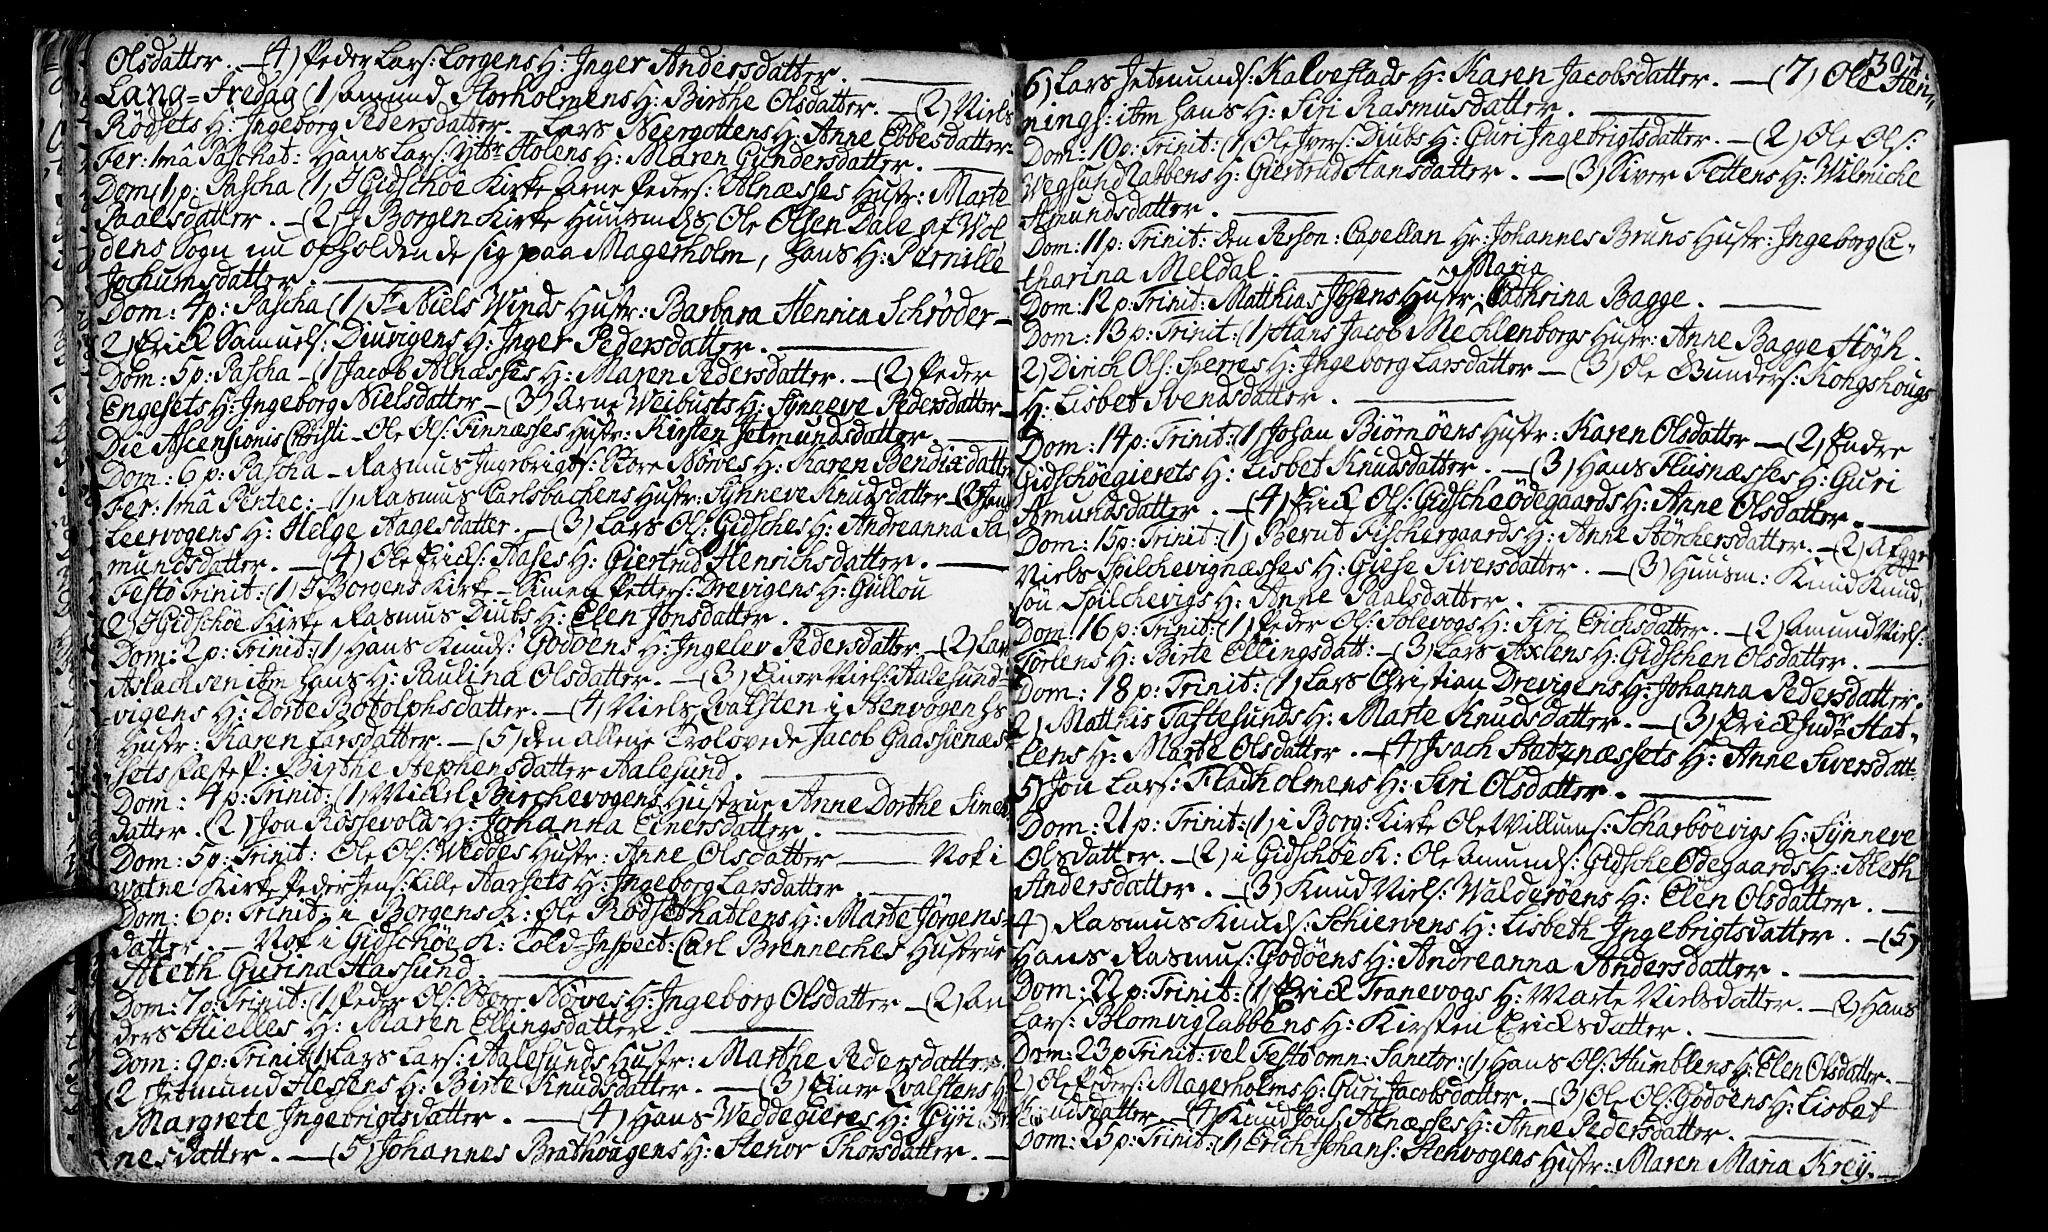 Olsdatter. — (4) Peder Lars: Lorgens H: Inger Andersdatter.
Lang-Fredag (1) Amund Storholmens H: Birthe Olsdatter. — (2) Niels
Rödsets H: Ingeborg Pedersdatter. Lars Neergottens H: Anne Ebbesdatter
Fer: 1mâ Paschat: Hans Lars: Ytr Holens H: Maren Gundersdatter.
Dom: 1 p: Pascha (1, I Gidschöe Kirke Arne Peders: Alnæsses Hustr: Marte
Paalsdatter. — (2 I Borgen Kirke Huusmds Ole Olsen Dale af Vol
dens Sogn nu opholdende sig paa Magerholm, hans H: Pernille
Jochumsdatter.
Dom: 4 p: Pascha (1) Sr Niels Winds Hustr: Barbara Henrica Schrøder —
2) Erick Samuels: Diuvigens H: Inger Pedersdatter.
Dom: 5 p: Pascha — (1 Jacob Alnæsses H: Maren Pedersdatter. — (2) Peder
Engesets H: Ingeborg Nielsdatter — (3) Arne Weibusts H: Synneve Pedersdatter —
Die Ascensionis Christi — Ole Ols: Finnæsses Hustr: Kirsten Jetmundsdatter.
Dom: 6 p: Pascha — Rasmus Ingebrigts: Store Nörves H: Karen Bendixdatter
Fer: 1mâ Pentec: — (1) Rasmus Carlsbachens Hustr: Synneve Knudsdatter — (2) Jens
Leervogens H: Helge Aagesdatter. — (3) Lars Ols: Gidsches H: Andreanna Aa
mundsdatter. — (4) Ole Ericks: Aases H: Giertrud Henrichsdatter.
Festo Trinit: (1) I Borgens Kirk — Simen Petters: Drevigens H: Gullou
2) I Gidschöe Kirke Rasmus Diubs H: Elen Jonsdatter.
Dom: 2 p: Trinit: (1) Hans Knuds: Godöens H: Ingelev Pedersdatter. — (2) Lars
Aslachsen itm hans H: Paulina Olsdatter. — (3) Einer Niels: Aalesund-
vigens H: Dorte Botolphsdatter. — (4) Niels Qvalsten i Stenvogen hs
Hustr: Karen Larsdatter. — (5) den allene Trolovede Jacob Gaassenæs-
sets Fæstep: Birthe Stephensdatter Aalesund.
Dom: 4 p: Trinit: (1) Mickel Birchevogens Hustrue Anne Dorthe Simens
datter. (2) Jon Rössevolds H: Johanna Einersdatter.
Dom: 5 p: Trinit: Ole Ols: Weddes Hustr: Anne Olsdatter — Nok i
Watne Kirke Peder Jens: Lille Aarsets H: Ingeborg Larsdatter.
Dom: 6 p: Trinit, i Borgens K: Ole Rödsethatlens H: Marte Jörgens-
datter. — Nok i Gidschöe K: Told-Inspect: Carl Brenneches Hustrue
Aleth Gurina Hassund.
Dom: 7 p: Trinit: (1) Peder Ols: Store Nörves H: Ingeborg Olsdatter — (2) An
ders Hielles H: Maren Ellingsdatter.
Dom: 9 p: Trinit (1 Lars Lars: Aalesunds Hustr: Marthe Pedersdatter
(2 Jetmund Hessens H: Birte Knudsdatter. — (3) Einer Qvalstens H
Margrete Ingebrigtsdatter. — (4) Hans Weddegieres H: Gyri
nesdatter. — (5) Johannes Brathougens H: Stenor Thorsdatter. —
307
6) Lars Jetmunds: Kalvestads H: Karen Jacobsdatter. — (7) Ole Hen-
nings: itm hans H: Siri Rasmusdatter.
Dom: 10 p: Trinit: (1 Ole Ivers: Diubs H: Guri Ingebrigtsdatter. — (2) Ole Ols:
WegsundRabbens H: Giertrud Hansdatter. — (3) Siver Fettens H: Wilmiche
Amundsdatter.
Dom: 11 p: Trinit: den Person: Capellan Hr: Johannes Bruns Hustr: Ingeborg Ca-
tharina Meldal.
Maria
Dom: 12 p: Trinit: Matthias Josens Hustr: Cathrina Bagge.
Dom: 13 p: Trinit: (1) Hans Jacob Mechlenborgs Hustr: Anne Bagge Høgh.
2) Dirich Ols: Sperres H: Ingeborg Larsdatter — (3) Ole Gunders: Kongshougs
H: Lisbet Svendsdatter.
Dom: 14 p: Trinit: (1) Johan Biörnöens Hustr: Karen Olsdatter — (2) Endre
Gidschöegierets H: Lisbet Knudsdatter. — (3) Hans Flisnæsses H: Guri
Amundsdatter. — (4) Erick Ols: Gidscheödegaards H: Anne Olsdatter.
Dom: 15 p: Trinit: (1) Bernt Fischergaards H: Anne Störchersdatter. — (2) Afgge
Niels Spilchevignæsses H: Giese Siversdatter. — (3) Huusm: Knud Knud-
sön Spilchevigs H: Anne Paalsdatter.
Dom: 16 p: Trinit: (1) Peder Ols: Solevogs H: Siri Erichsdatter. — (2) Amund Niels:
Törlens H: Birte Ellingsdatt: — (3) Lars Axlens H: Gidschen Olsdatter.
Dom: 18 p: Trinit: (1) Lars Christian Drevigens H: Johanna Pedersdatter.
2) Matthis Taftesunds H: Marte Knudsdatter. — (3) Erick Indr Hat-
lens H: Marte Olsdatter. — (4) Isach Slatznæssets H: Anne Siversdatt:
5) Jon Lars: Fladholmens H: Siri Olsdatter.
Dom: 21 p: Trinit: (1) i Borg: Kirke Ole Willums: Scharböevigs H: Synneve
Olsdatter. — (2) i Gidschöe K: Ole Amunds: Gidsche Ødegaards H: Aleth
Andersdatter. — (3) Knud Niels: Walderöens H: Elen Olsdatter.
4) Rasmus Knuds: Schiervens H: Lisbeth Ingebrigtsdatter. — (5)
Hans Rasmus: Godöens H: Andreanna Andersdatter.
Dom: 22 p: Trinit: (1) Erick Tranevogs H: Marte Nielsdatter. — (2) Hans
Lars: BlomvigRabbens H: Kirsten Ericksdatter.
Dom: 23 p Trinit: vel Festo omn: Sanctor: (1) Hans Ols: Humblens H: Elen Olsdatter.
2) Ole Peders: Magerholms H: Guri Jacobsdatter. — (3) Ole Ols: Godöens H: Lisbet
Knudsdatter — (4) Knud Jons: Alnæsses H: Anne Pedersdatter.
Dom: 25 p: Trinit: (1) Erich Johans: Stenvogens Hustr: Maren Maria Kreÿ. —